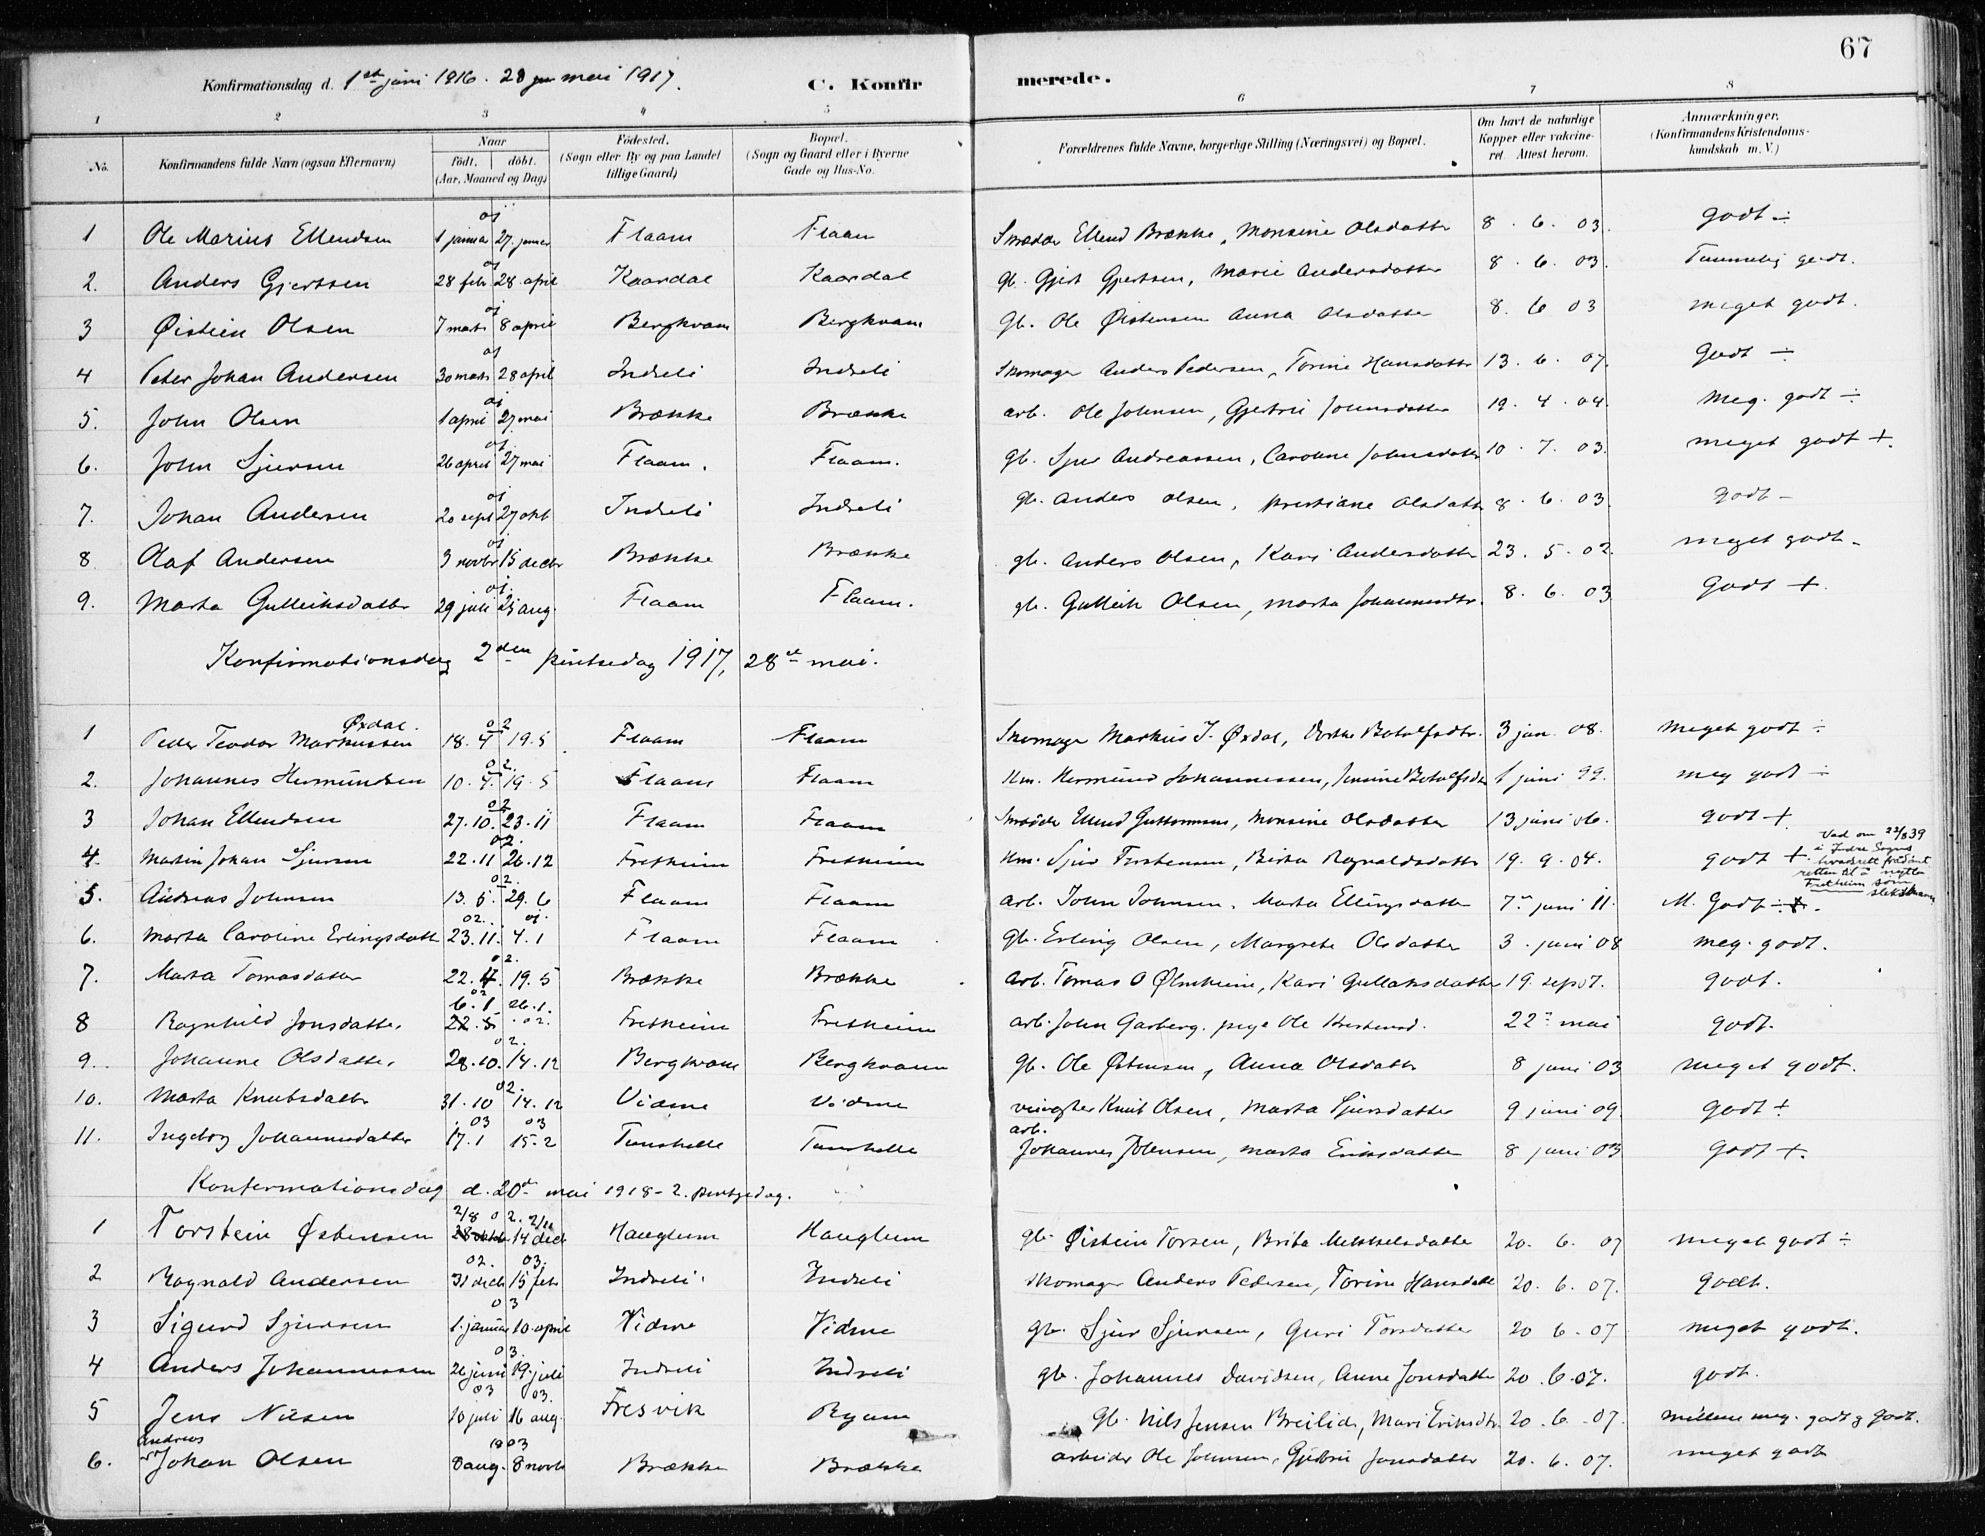 67
Konfirmationsdag d. 1ste juni 1916. 28 mai 1917. C. Konfirmerede.
1 2 3 4 5 6 7 8
No. Konfirmandens fulde Navn (ogsaa Efternavn) Naar født. døbt. (Aar, Maaned og Dag) Fødested. (Sogn eller By og paa Landet tillige Gaard) Bopæl. (Sogn og Gaard eller i Byerne Gade og Hus-No. Forældrenes fulde Navne, borgerlige Stilling (Næringsvei) og Bopæl. Om havt de naturlige Kopper eller vakcineret. Attest herom. Anmærkninger. (Konfirmandens Kristendomskundskab m. V.)
1 Ole Marius Ellendsen 01 1 januar 27. januar Flaam Flaam Skrædder Ellend Brække, Monsine Olsdatter 8. 6. 03. godt ÷
2. Anders Gjertsen 01 28 febr 28. april Kaardal Kaardal gb. Gjert Gjertsen, Marie Andersdatter 8. 6. 03. Temmelig godt.
3 Øistein Olsen 01 7 mars 8 april Bergkvam Bergkvam gb. Ole Øistensen Anna Olsdatter 8. 6 03 meget godt.
4 Peter Johan Andersen 01 30 mars 28 april Indreli Indreli Skomager Anders Pedersen, Torine Hansdatter 13. 6. 07. Godt ÷
5. John Olsen 01 1 april 27 mai Brække Brække arb. Ole Johnsen, Gjertrii Johnsdatter 19. 4. 04. Meg. godt ÷
6. John Sjursen 01. 26 april 27 mai Flaam. Flaam. gb. Sjur Andreassen, Caroline Johnsdatter 10. 7. 03. meget godt +.
7. Johan Andersen 01 20 sept 27 okt Indreli Indreli gb. Anders Olsen, Kristiane Olsdatter 8. 6. 03. godt -
8 Olaf Andersen 01 3 novbr 15 decbr Brække Brække gb. Anders Olsen, Kari Andersdatter 23. 5. 02. meget godt -
9. Marta Gulleiksdatter 01. 29 juli 25 aug. Flaam Flaam. gb. Gulleik Olsen, Marta Johannesdtr. 8. 6. 03 godt +.
Konfirmationsdag 2den pintsedag 1917, 28de mai.
1 Peder Teodor Markussen Øxdal. 02 18. 4 19. 5 Flaam Flaam Skomager Markus J. Øxdal, Dorthe Botolfsdtr. 3 jan. 08. meget godt ÷
2. Johannes Hermundsen 02. 10. 4. 19. 5 Flaam Flaam Hm. Hermund Johannessen, Jensine Botolfsdtr 1 juni 99. meg godt ÷
3 Johan Ellendsen 02 27. 10. 23. 11 Flaam Flaam Skrædder Ellend Guttormsen, Monsine Olsdatter 13 juni 06. godt +
4. Martin Johan Sjursen 02. 22. 11 26. 12 Fretheim Fretheim Hm. Sjur Torstensen, Birta Ragnaldsdatter 19. 9. 04. godt + Ved om 22/8 39 i Indre Sogns herredsrett frådømt retten til å nytta Fretheim som slektsnavn
5. Andreas Johnsen 02. 13. 5. 29. 6 Flaam Flaam arb. John Johnsen. Marta Ellingsdatter 7de juni 11. M. Godt ÷.
6. Marta Caroline Erlingsdatt 02. 01. 23. 11. 4. 1 Flaam Flaam gb. Erling Olsen, Margrete Olsdatter 3. juni 08 meg. godt.
7. Marta Tomasdatter 02. 22. 4. 19. 5 Brække Brække arb. Tomas O Ølnheim, Kari Gullaksdatter 19. sep 07. godt.
8 Ragnhild Jonsdatter. 02 6. 1 26. 1. 22. 5 02. Fretheim Fretheim arb. John Garberg. pige Ole 22de mai godt.
9. Johanne Olsdatter. 02. 28. 10. 14. 12 Bergkvam Bergkvam gb. Ole Østensen, Anna Olsdatter 8 juni 03 meget godt.
10. Marta Knutsdatter 02. 31. 10 14. 12 Vidme Vidme Knut Olsen, Marta Sjursdatter 9 juni 09. godt ÷
11. Ingeborg Johannesdatter 03 03 17. 1 15. 2 Tunshelle Tunshelle arb. Johannes Jensen, Marta Eriksdatter 8 juni 03 godt +.
Konfirmationsdag d. 20de mai 1918 - 2. pintsedag.
1 Torstein Østensen 2/8 02. 2/11 28 oktbr 14 decb Hauglum Hauglum gb. Øistein Torsen, Brita Mikkelsdatter 20. 6. 07 meget godt ÷
2 Ragnald Andersen 02. 03. 31 decb 15 febr Indreli. Indreli Skomager Anders Pedersen, Torine Hansdatt 20. 6. 07. godt.
3 Sigurd Sjursen 03 1. januar 10. april Vidme Vidme gb. Sjur Sjursen, Guri Torsdatter 20 6. 07 meget godt.
4 Anders Johannessen 03. 26 juni 19. juli Indreli Indreli gb. Johannes Davidsen, Anne Jonsdatter 20. 6. 07. godt.
5 Jens Nilsen 03 03. 10 juli 16 aug. Fresvik Ryam gb. Nils Jensen Breilid, Mari Eriksdtr 20. 6. 07. mellem meg. godt og godt.
6. Andreas Johan Olsen 1903 8 aug. 8 novb Brække Brække arbeider Ole Johnsen, Gjertrii Jonsdatter 20. 6. 07. meget godt